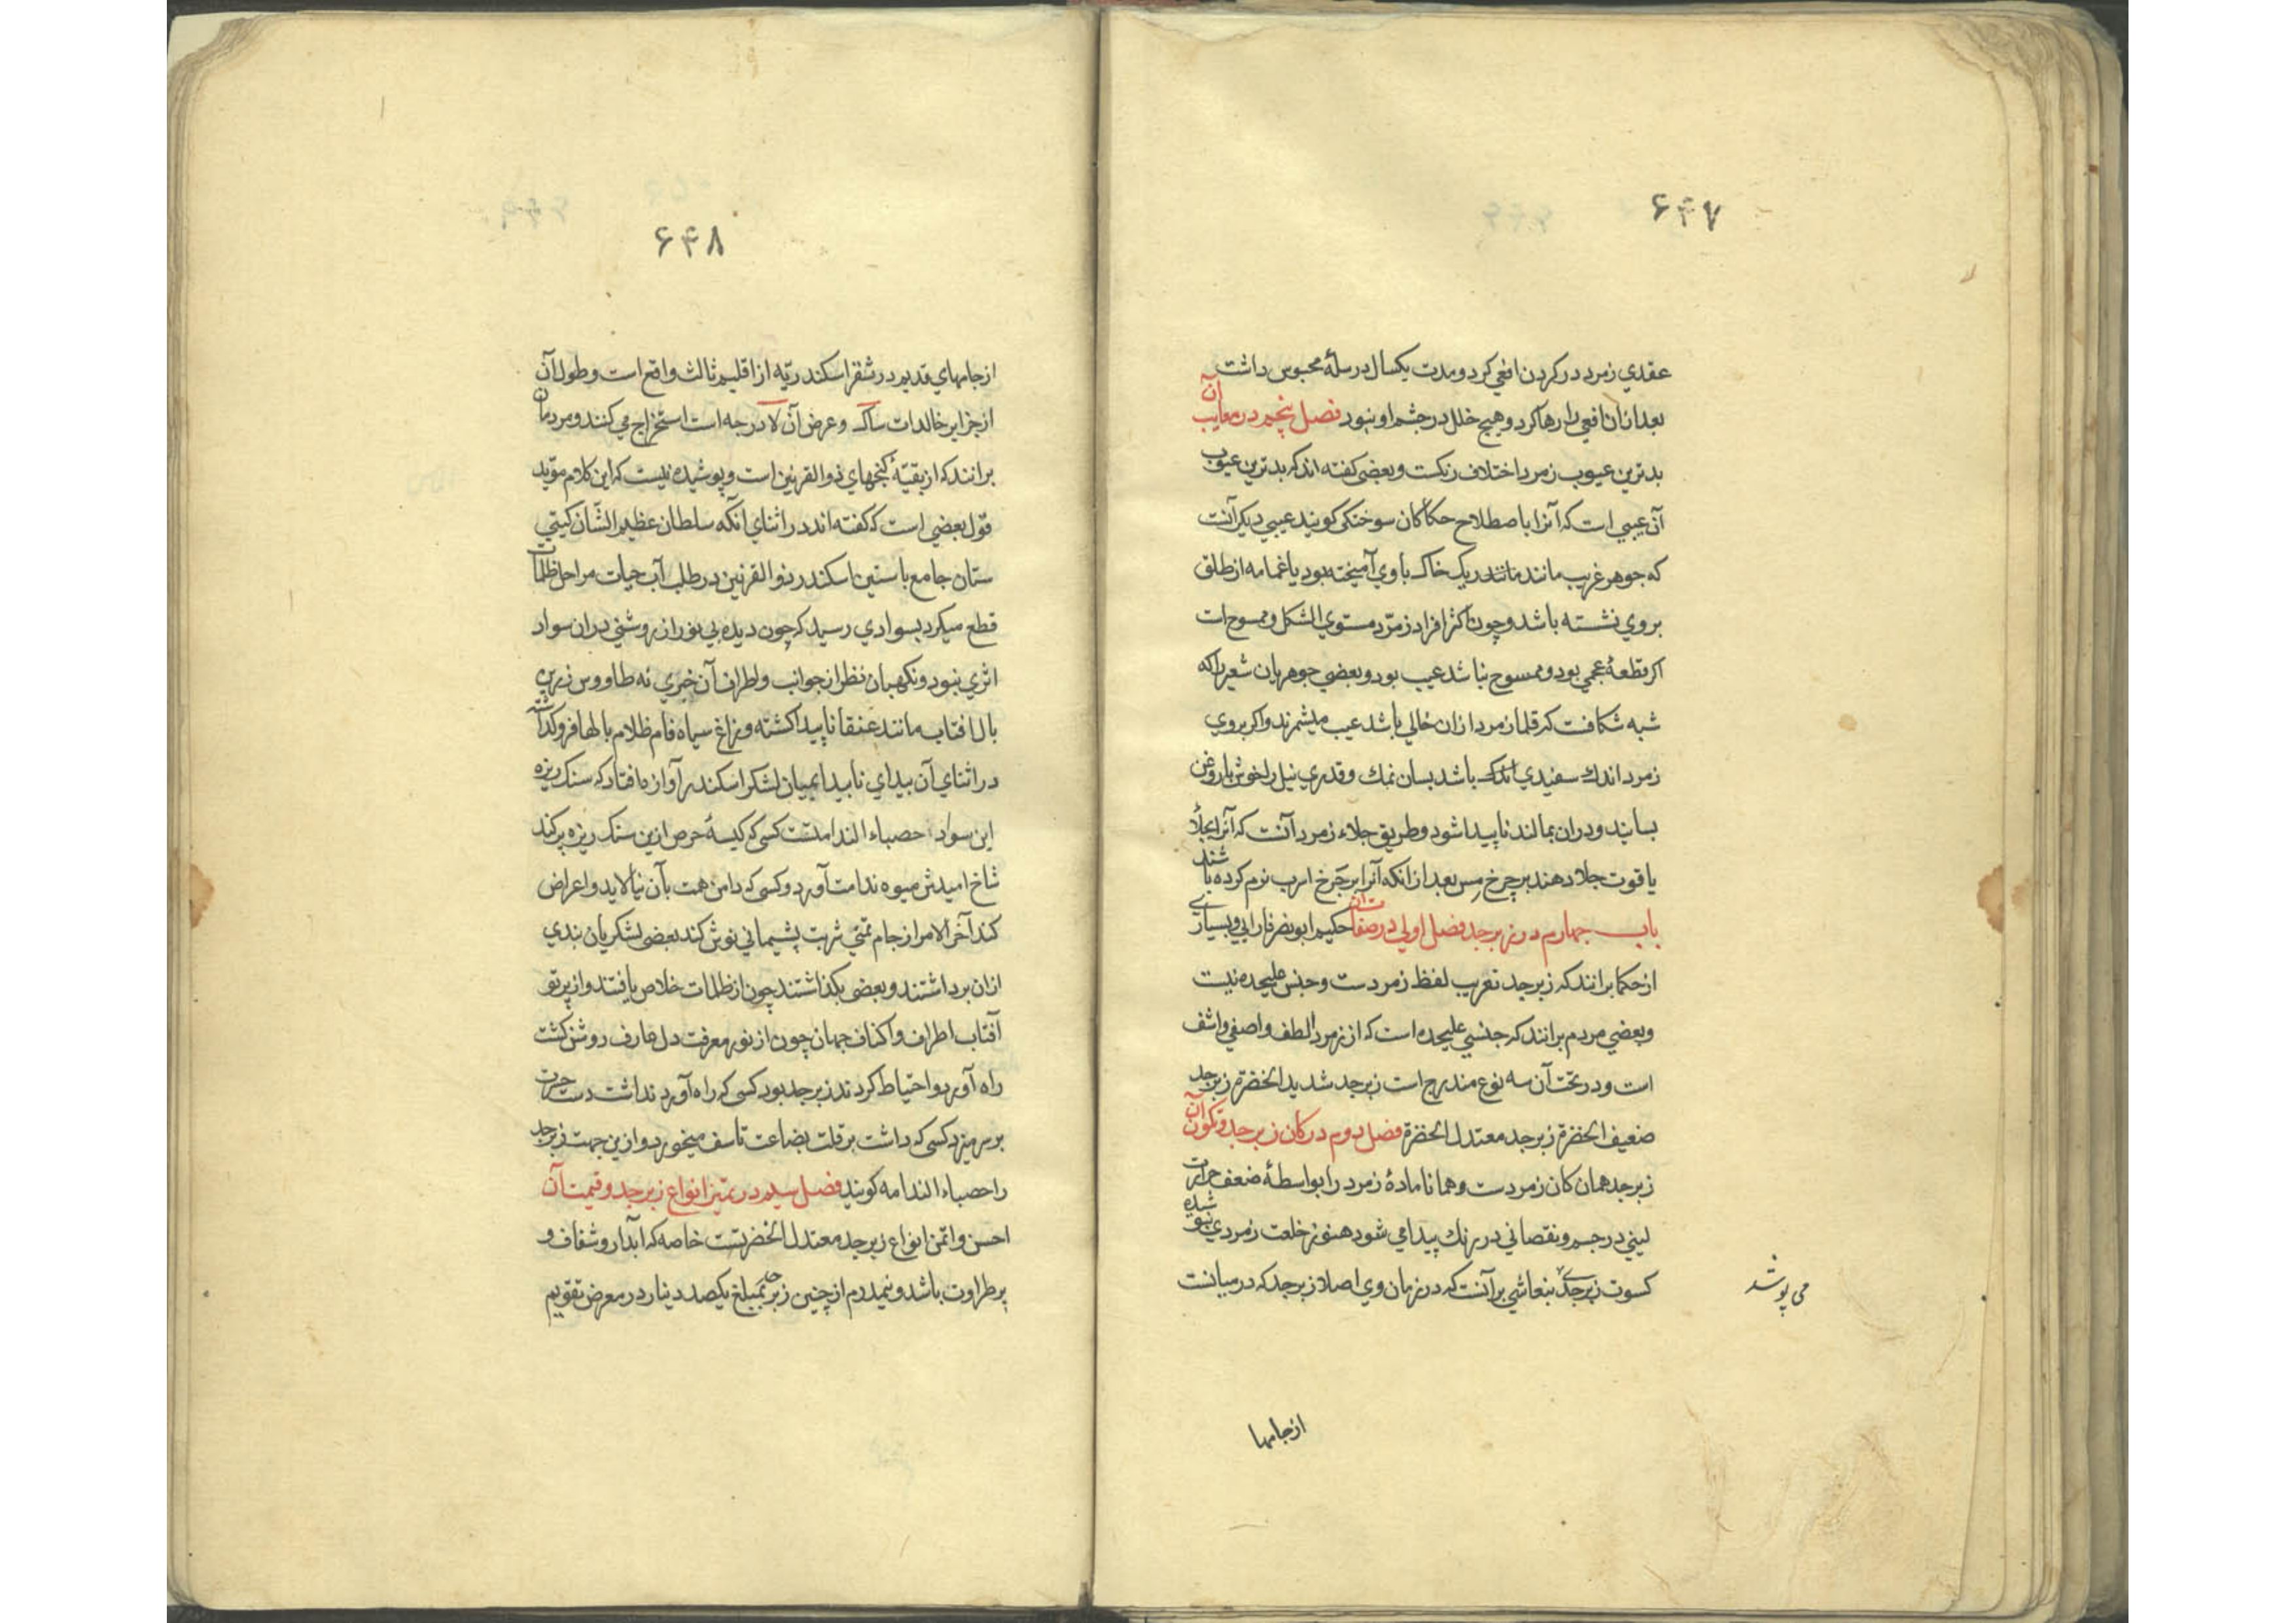 ۶۴۷
عقدي زمرد در كردن افعي كرد و مدت يكسال در سلهٔ محبوس داشت
بعد ازان افعي را رها كرد و هيچ خلل در چشم او نبود فصل پنجم در معايب آن
بدترين عيوب زمرد اختلاف رنكست و بعضي كفته اند كه بدترين عيوب
آن عيبي است كه آنرا باصطلاح حكاكان سوختكي كويند عيبي ديكر آنست
كه جوهر غريب مانند مانند ريك خاك با وي آميخته بود يا غمامه از طلق
بر وي نشسته باشد و چون اكثر افراد زمرّد مستوي الشكل و ممسوح است
اكر قطعهٔ عجمي بود و ممسوح نباشد عيب بود و بعضي جوهريان شعير را كه
شبه شكافست كه قلما زمرد ازان خالي باشد عيب ميشمرند و اكر بروي
زمرد اندك سفيدي اندك باشد بسان نمك و قدري نيل را خوش با روغن
بسايند و دران بمالند ناپيدا شود و طريق جلاء زمرد آنست كه آنرا بجلاء
ياقوت جلا دهند بر چرخ مس بعد از انكه آنرا بر چرخ اسرب نرم كرده باشند
باب چهارم در زبرجد فصل اولي در صفات آن حكيم ابو نصر فارابي و بسياري
از حكما برانند كه زبرجد تعريب لفظ زمردست و جنس عليحده نيست
و بعضي مردم برانند كه جنسي عليحده است كه از زمرد الطف و اصفي و اشف
است و در تحت آن سه نوع مندرج است زبرجد شديد الخضرة زبرجد
ضعيف الخضرة زبرجد معتدل الخضرة فصل دوم در كان زبرجد و تكون آن
زبرجد همان كان زمردست و همانا مادهٔ زمرد را بواسطهٔ ضعف حرارت
ليني در جسم و نقصاني در رنك پيدا مي شود هنوز خلعت زمردي نپوشيده
كسوت زبرجدي بنعاشي بر آنست كه در زمان وي اصلا زبرجد كه در ميانست
مي پوشد
از جامها
۶۴۸
از جامهاي قديم در ثغر اسكندريّه از اقليم ثالث واقع است و طول آن
از جزاير خالدات ساك و عرض آن لا درجه است استخراج مي كنند و مردمان
برانند كه از بقيّهٔ كنجهاي ذو القرنين است و پوشيده نيست كه اين كلام مويّد
قول بعضي است كه كفته اند در اثناي آنكه سلطان عظيم الشّان كيتي
ستان جامع باستين اسكندر ذو القرنين در طلب آب حيات مراحل ظلمات
قطع ميكرد بسوادي رسيد كه چون ديده بي نور از روشني دران سواد
اثري نبود و نكهبان نظر از جوانب و اطراف آن خبري نه طاووس زرين
بال افتاب مانند عنقا ناپيدا كشته و زاغ سياه فام ظلام بالها فرو كذاشته
در اثناي آن بيداي ناپيدا بميان لشكر اسكندر آوازه افتاد كه سنك ريزه
اين سواد حصباء الندامتست كسي كه كيسهٔ حرص ازين سنك ريزه پر كند
شاخ اميدش ميوه ندامت آورد و كسي كه دامن همت بآن نيالايد و اعراض
كند آخر الامر از جام تمني شربت پشيماني نوش كند بعضي لشكريان بندي
ازان برداشتند و بعضي بكذاشتند چون از ظلمات خلاص يافتند و از پرتو
آفتاب اطراف و اكناف جهان چون از نور معرفت دل عارف روشن كشت
راه آورد و احتياط كردند زبرجد بود كسي كه راه آورد نداشت دست حسرت
بر سر ميزد كسي كه داشت بر قلت بضاعت تاسف ميخورد و ازين جهت زبرجد
را حصباء الندامه كويند فصل سيم در تميز انواع زبرجد و قيمت آن
احسن و اثمن انواع زبرجد معتدل الخضرتست خاصه كه آبدار و شفاف و
پر طراوت باشد و نيمدرم از چنين زبرجد بمبلغ يكصد دينار در معرض تقويم